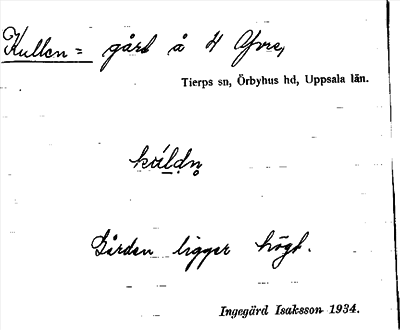 Kullen = gård å 4 Yvre,
Tierps sn, Örbyhus hd, Uppsala län.
Gården ligger högt.
Ingegärd Isaksson 1934.